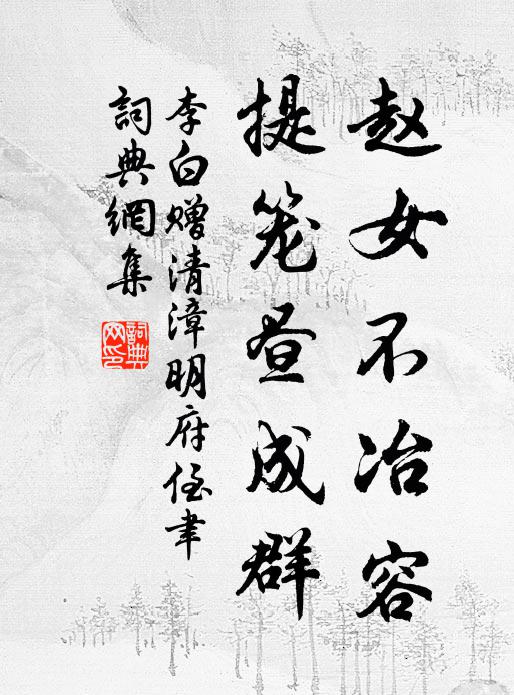 赵女不冶容
提笼昼成群
李白赠清漳明府侄聿
詞典網集
詞典网印